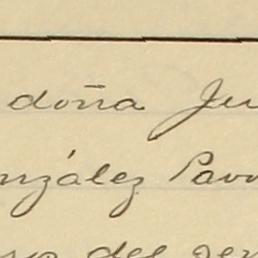 doña Ju
nzález Pavo
del